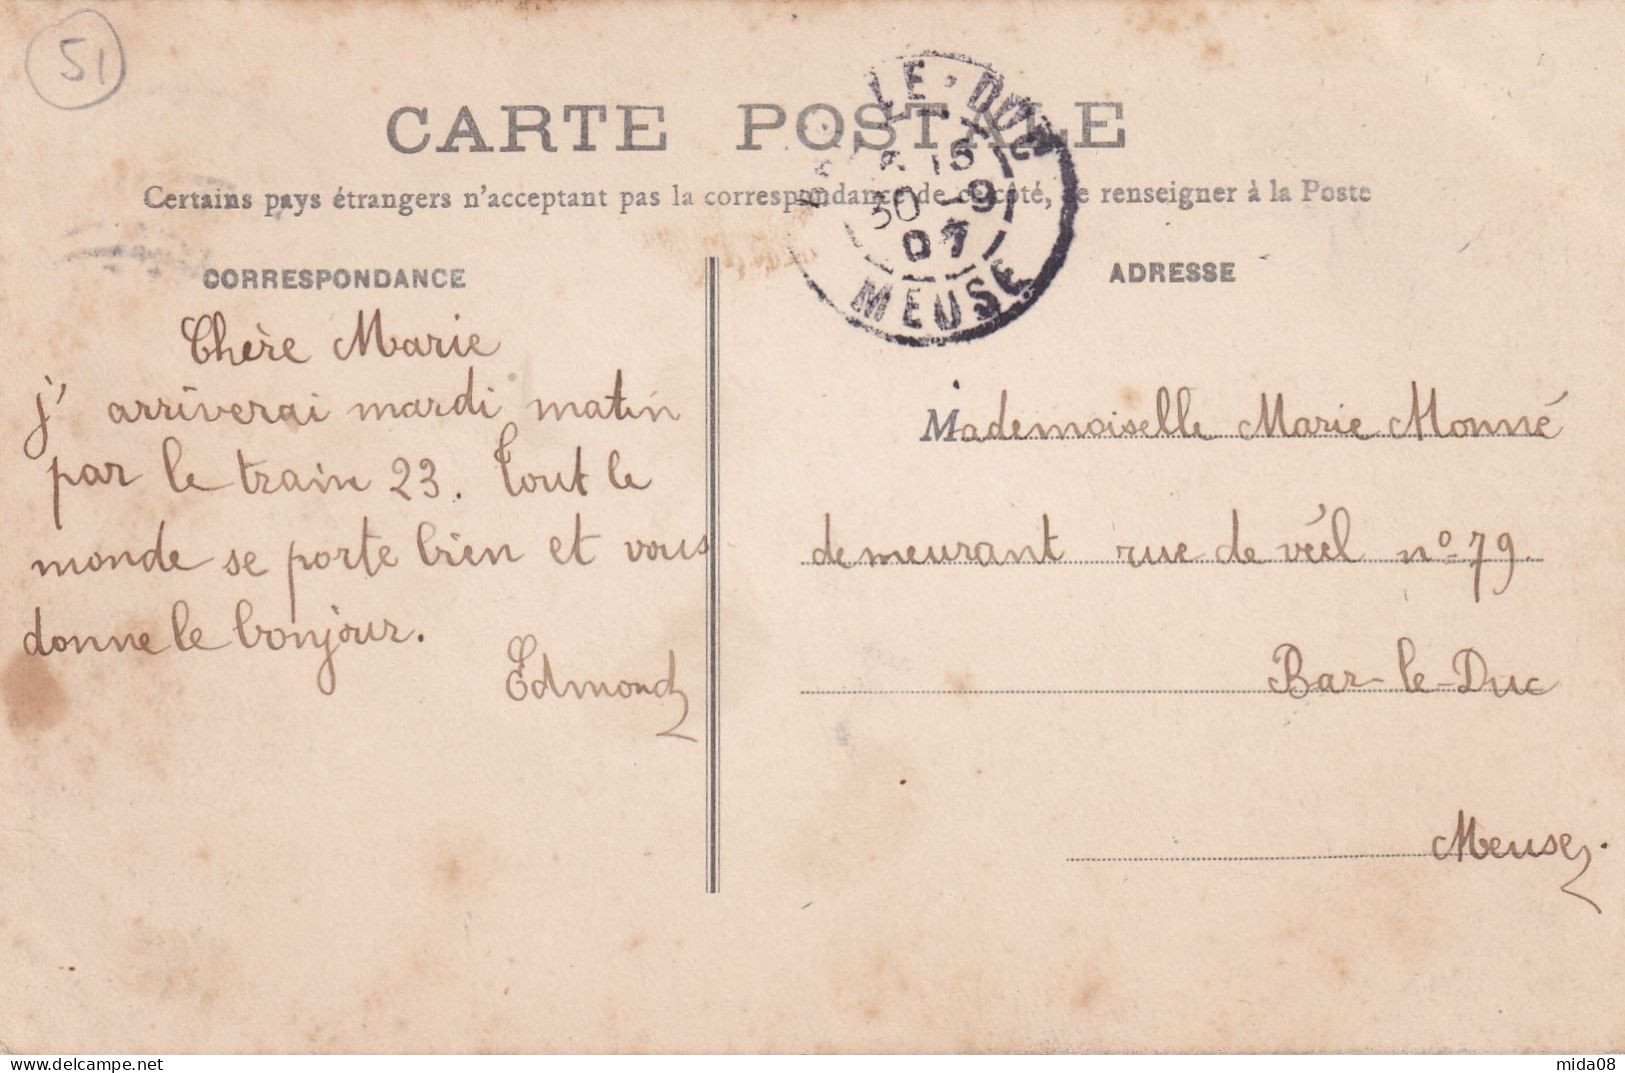 51
CARTE POSTALE
Certains pays étrangers n'acceptant pas la correspondance de ce côté, se renseigner à la Poste
LE-DUC
30-9
07
MEUSE
CORRESPONDANCE
Chère Marie
j' arriverai mardi matin
par le train 23. Tout le
monde se porte bien et vous
donne le bonjour.
Edmond
ADRESSE
Mademoiselle Marie Monné
demeurant rue de véel nº 79
Bar-le-Duc
Meuse.
mida08